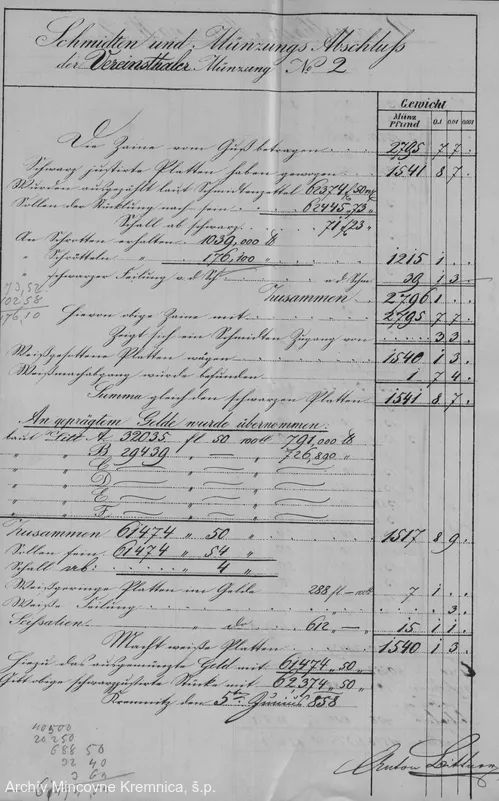 Schmidten und Münzungs Abschluß
der Vereinsthaler Münzung No 2
Gewicht
Münz Pfund 0.1 0.01 0.001
Die Zaine vom Guß betragen 2795 7 7
Schwarz justirte Platten haben gewogen 1541 8 7
Wurden ausgezählt laut Schmittenzettel 62374 f 50
Sollen der Stücklung nach sein 62445,73
Schall ab schwarz 71 f 23
An Schrotten erhalten 1039,000 ℔
" Schütteln " 176,100 " 1215 1
" schwarzer Feilung 39 1 3
73,52
102 58
176 10
Zusammen 2796 1
Hievon obige Zaine mit 2795 7 7
Zeigt sich ein Schmidten Zugang von 3 3
Weißgesottene Platten wägen 1540 1 3
Weißmachabgang wurde befunden 1 7 4
Summa gleich den schwarzen Platten 1541 8 7
An geprägtem Gelde wurde übernommen
laut Zettl A. 32035 fl 50 791,000 ℔
" " B 29439 " — " 726,890 "
" " C
" " D
" " E
" " F
Zusammen 61474 " 50 " 1517 8 9
Sollen sein 61474 " 54 "
Schall ab 4 "
Weißgeringe Platten im Gelde 288 fl — 7 1
Weiße Feilung 3
" do 612 " — " 15 1 1
Macht weiße Platten 1540 1 3
Hiezu das ausgemünzte Geld mit 61474 " 50 "
Gibt obige schwarzjustirte Stücke mit 62,374 " 50 "
Kremnitz den 5ten Junius 858
40500
20250
688 50
32 40
3 60
Anton Bittner
Archív Mincovne Kremnica, š.p.